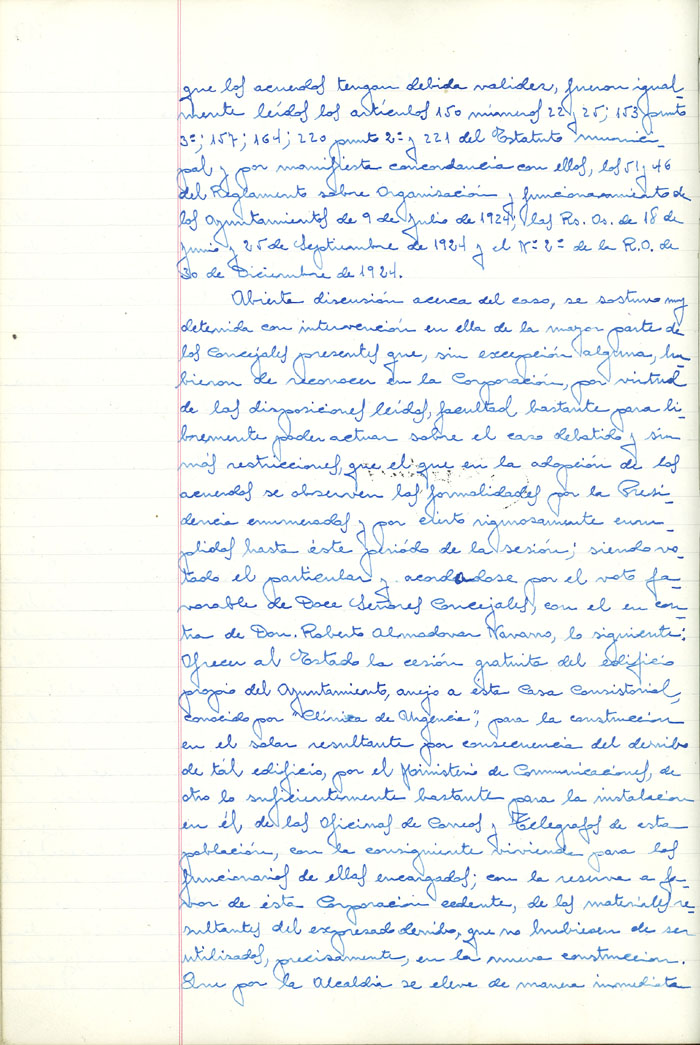 que los acuerdos tengan debida validez, fueron igual-
mente leídos los artículos 150 números 22 y 25; 153 punto
3º; 157; 164; 220 punto 2º y 221 del Estatuto munici-
pal y por manifiesta concordancia con ellos, los 51 y 46
del Reglamento sobre Organización y funcionamiento de
los Ayuntamientos de 9 de Julio de 1924; las Rs. Os. de 18 de
Junio y 25 de Septiembre de 1924 y el Nº 2º de la R.O. de
30 de Diciembre de 1924.
Abierta discusión acerca del caso, se sostuvo muy
detenida con intervención en ella de la mayor parte de
los Concejales presentes que, sin excepción alguna, hu-
bieron de reconocer en la Corporación, por virtud
de las disposiciones leídas, facultad bastante para li-
bremente poder actuar sobre el caso debatido y sin
más restricciones, que el que en la adopción de los
acuerdos se observen las formalidades por la Presi-
dencia enumeradas y por cierto rigurosamente cum-
plidas hasta éste período de la sesión; siendo vo-
tado el particular y acordadose por el voto fa-
vorable de Doce Señores Concejales, con el en con-
tra de Don. Roberto Almadovar Navarro, lo siguiente:
Ofrecer al Estado la cesión gratuita del edificio
propio del Ayuntamiento, anejo a ésta Casa Consistorial,
conocido por "Clínica de Urgencia", para la construccion
en el solar resultante por consecuencia del derribo
de tál edificio, por el Ministerio de Communicaciones, de
otro lo suficientemente bastante para la instalacion
en él de las Oficinas de Correos y Telegrafos de esta
poblacion, con la consiguiente vivienda para los
funcionarios de ellas encargados; con la reserva a fa-
vor de ésta Corporacion cedente, de los materiales re-
sultantes del expresado derribo, que no hubiesen de ser
utilizados, precisamente, en la nueva construccion.
Que por la Alcaldía se eleve de manera inmediata